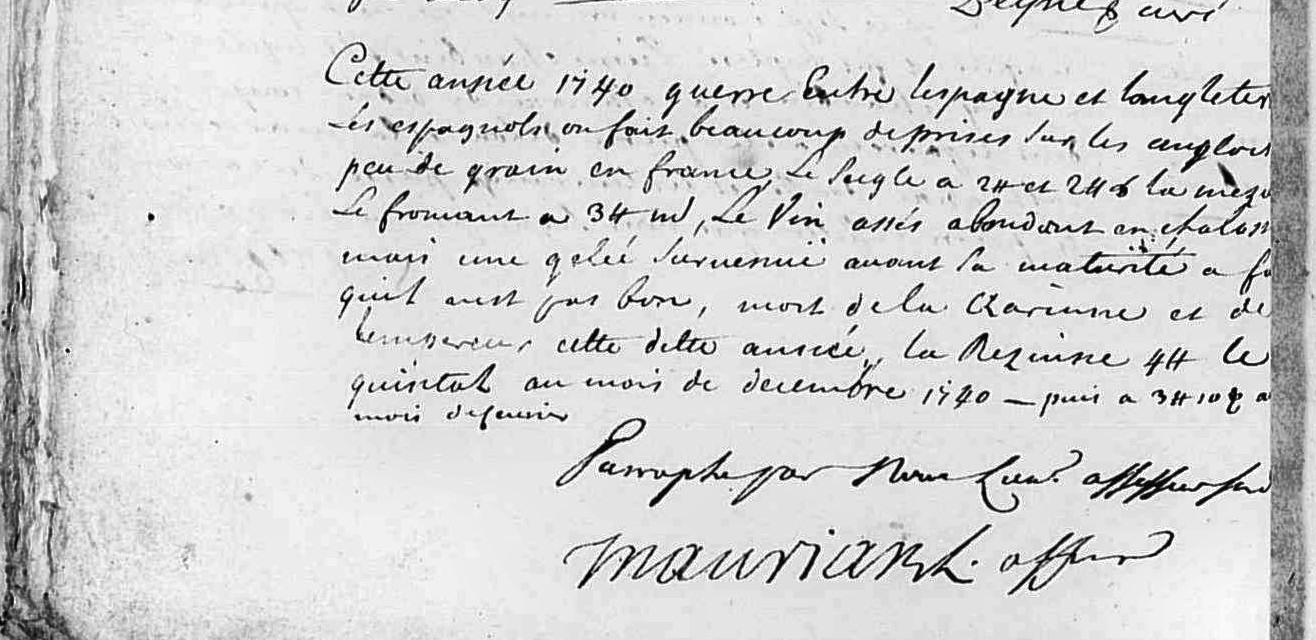 curé
Cette année 1740 guerre Entre lespagne et langleter
Les espagnols on fait beaucoup de prises sur les anglois
peu de grain en france, Le seigle a 2ʰ et 2ʰ la mezu
Le fromant a 3ʰ, Le Vin assés abondant en
mais une gelée survenuë avant la maturité a fa
quil nest pas bon, mort de la Czarienne et de
lempereur cette ditte année, la Rezinne 4ʰ le
quintal au mois de decembre 1740 — puis a 3ʰ 10 a
mois de feurier
Parraphe par Nous Lieut. assesseur